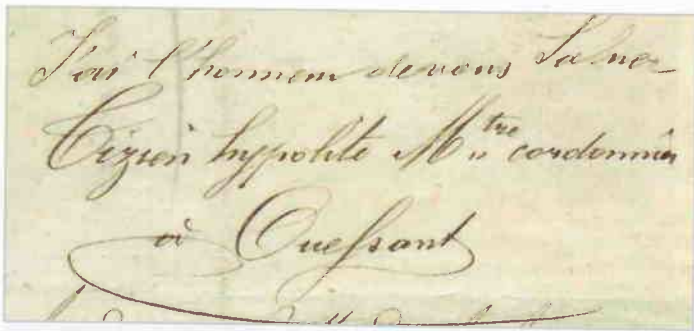 J'ai l'honneur de vous Saluer
Tizien hyppolite M.tre cordonnier
à Ouessant